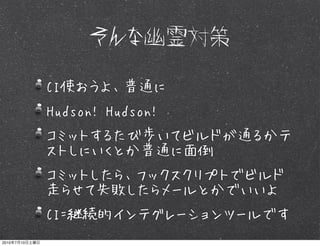 そんな幽霊対策
CI使おうよ、普通に
Hudson! Hudson!
コミットするたび歩いてビルドが通るかテ
ストしにいくとか普通に面倒
コミットしたら、フックスクリプトでビルド
走らせて失敗したらメールとかでいいよ
CI=継続的インテグレーションツールです
2010年7月10日土曜日